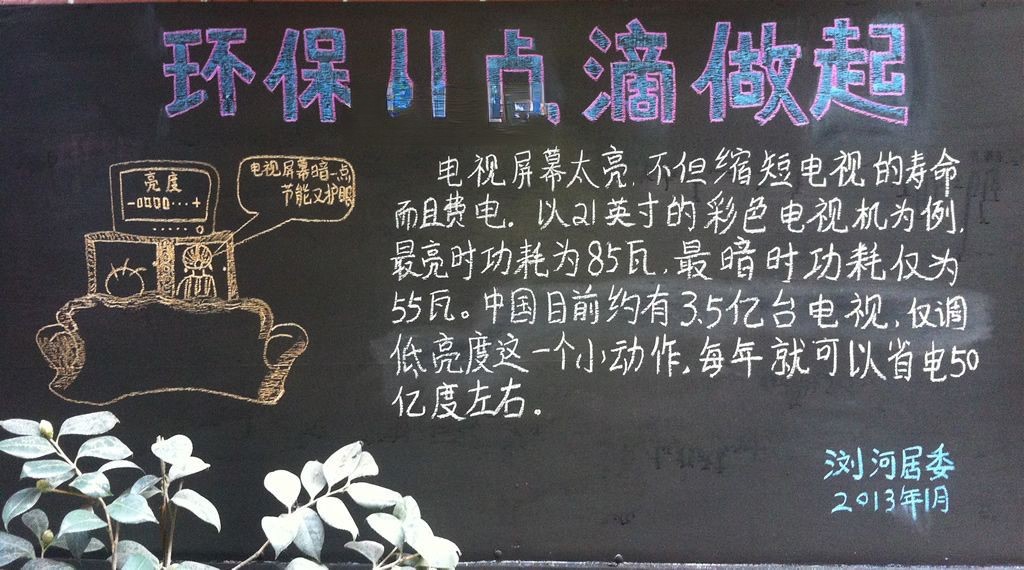 环保 滴做起
亮度
- +
电视屏幕暗一点
节能又护眼
电视屏幕太亮,不但缩短电视的寿命
而且费电。以21英寸的彩色电视机为例,
最亮时功耗为85瓦,最暗时功耗仅为
55瓦。中国目前约有3.5亿台电视,仅调
低亮度这一个小动作,每年就可以省电50
亿度左右。
浏河居委
2013年1月